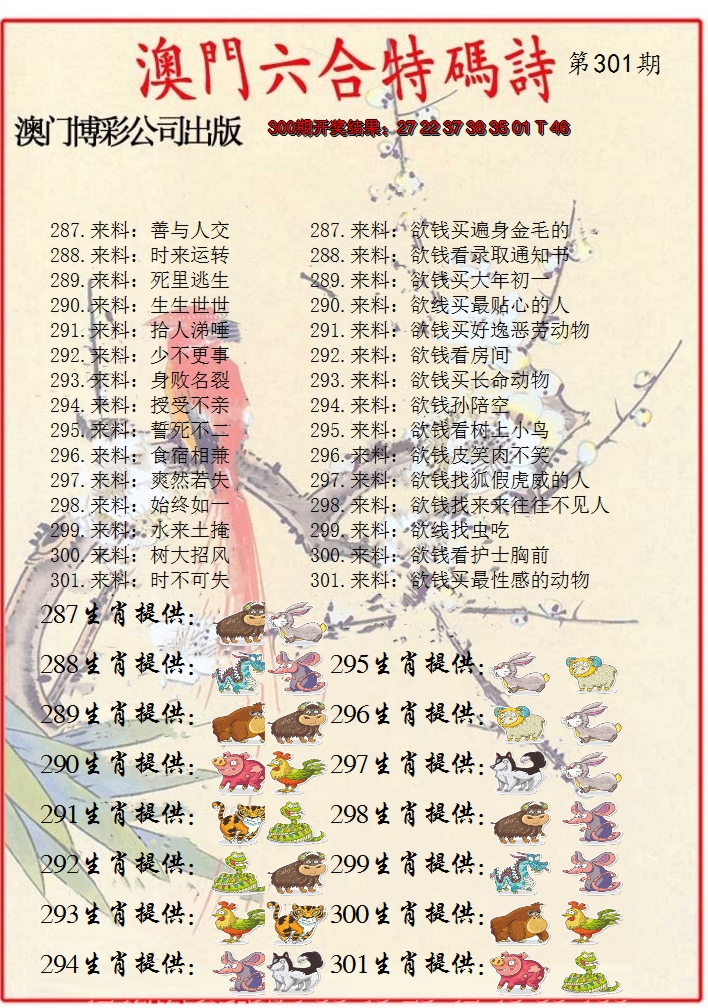 澳門六合特碼詩 第301期
澳门博彩公司出版 300期开奖结果：27 22 37 38 35 01 T 46
287.来料：善与人交 287.来料：欲钱买遍身金毛的
288.来料：时来运转 288.来料：欲钱看录取通知书
289.来料：死里逃生 289.来料：欲钱买大年初一
290.来料：生生世世 290.来料：欲线买最贴心的人
291.来料：拾人涕唾 291.来料：欲钱买好逸恶劳动物
292.来料：少不更事 292.来料：欲钱看房间
293.来料：身败名裂 293.来料：欲钱买长命动物
294.来料：授受不亲 294.来料：欲钱孙陪空
295.来料：誓死不二 295.来料：欲钱看树上小鸟
296.来料：食宿相兼 296.来料：欲钱皮笑肉不笑
297.来料：爽然若失 297.来料：欲钱找狐假虎威的人
298.来料：始终如一 298.来料：欲钱找来来往往不见人
299.来料：水来土掩 299.来料：欲线找虫吃
300.来料：树大招风 300.来料：欲钱看护士胸前
301.来料：时不可失 301.来料：欲钱买最性感的动物
287生肖提供：
288生肖提供： 295生肖提供：
289生肖提供： 296生肖提供：
290生肖提供： 297生肖提供：
291生肖提供： 298生肖提供：
292生肖提供： 299生肖提供：
293生肖提供： 300生肖提供：
294生肖提供： 301生肖提供：